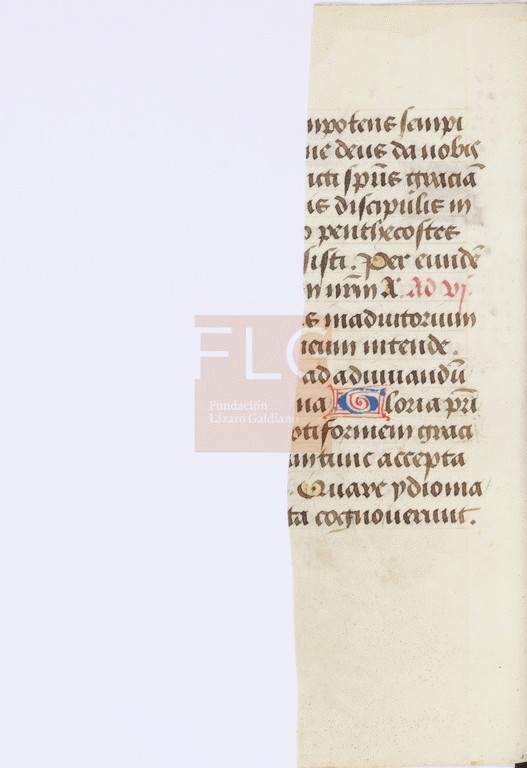 mpotens sempi
ne deus da nobis
ncti spūs graciā
is discipulis in
o penthecostes
sisti. Per eundē
m nrm X. Ad vi.
s in adiutorium
meum intende.
ad adiuuandū
na Gloria pri
otiformem graci
antunc accepta
. Quare ydioma
ta cognouerunt.
FLG
Fundación
Lázaro Galdiano